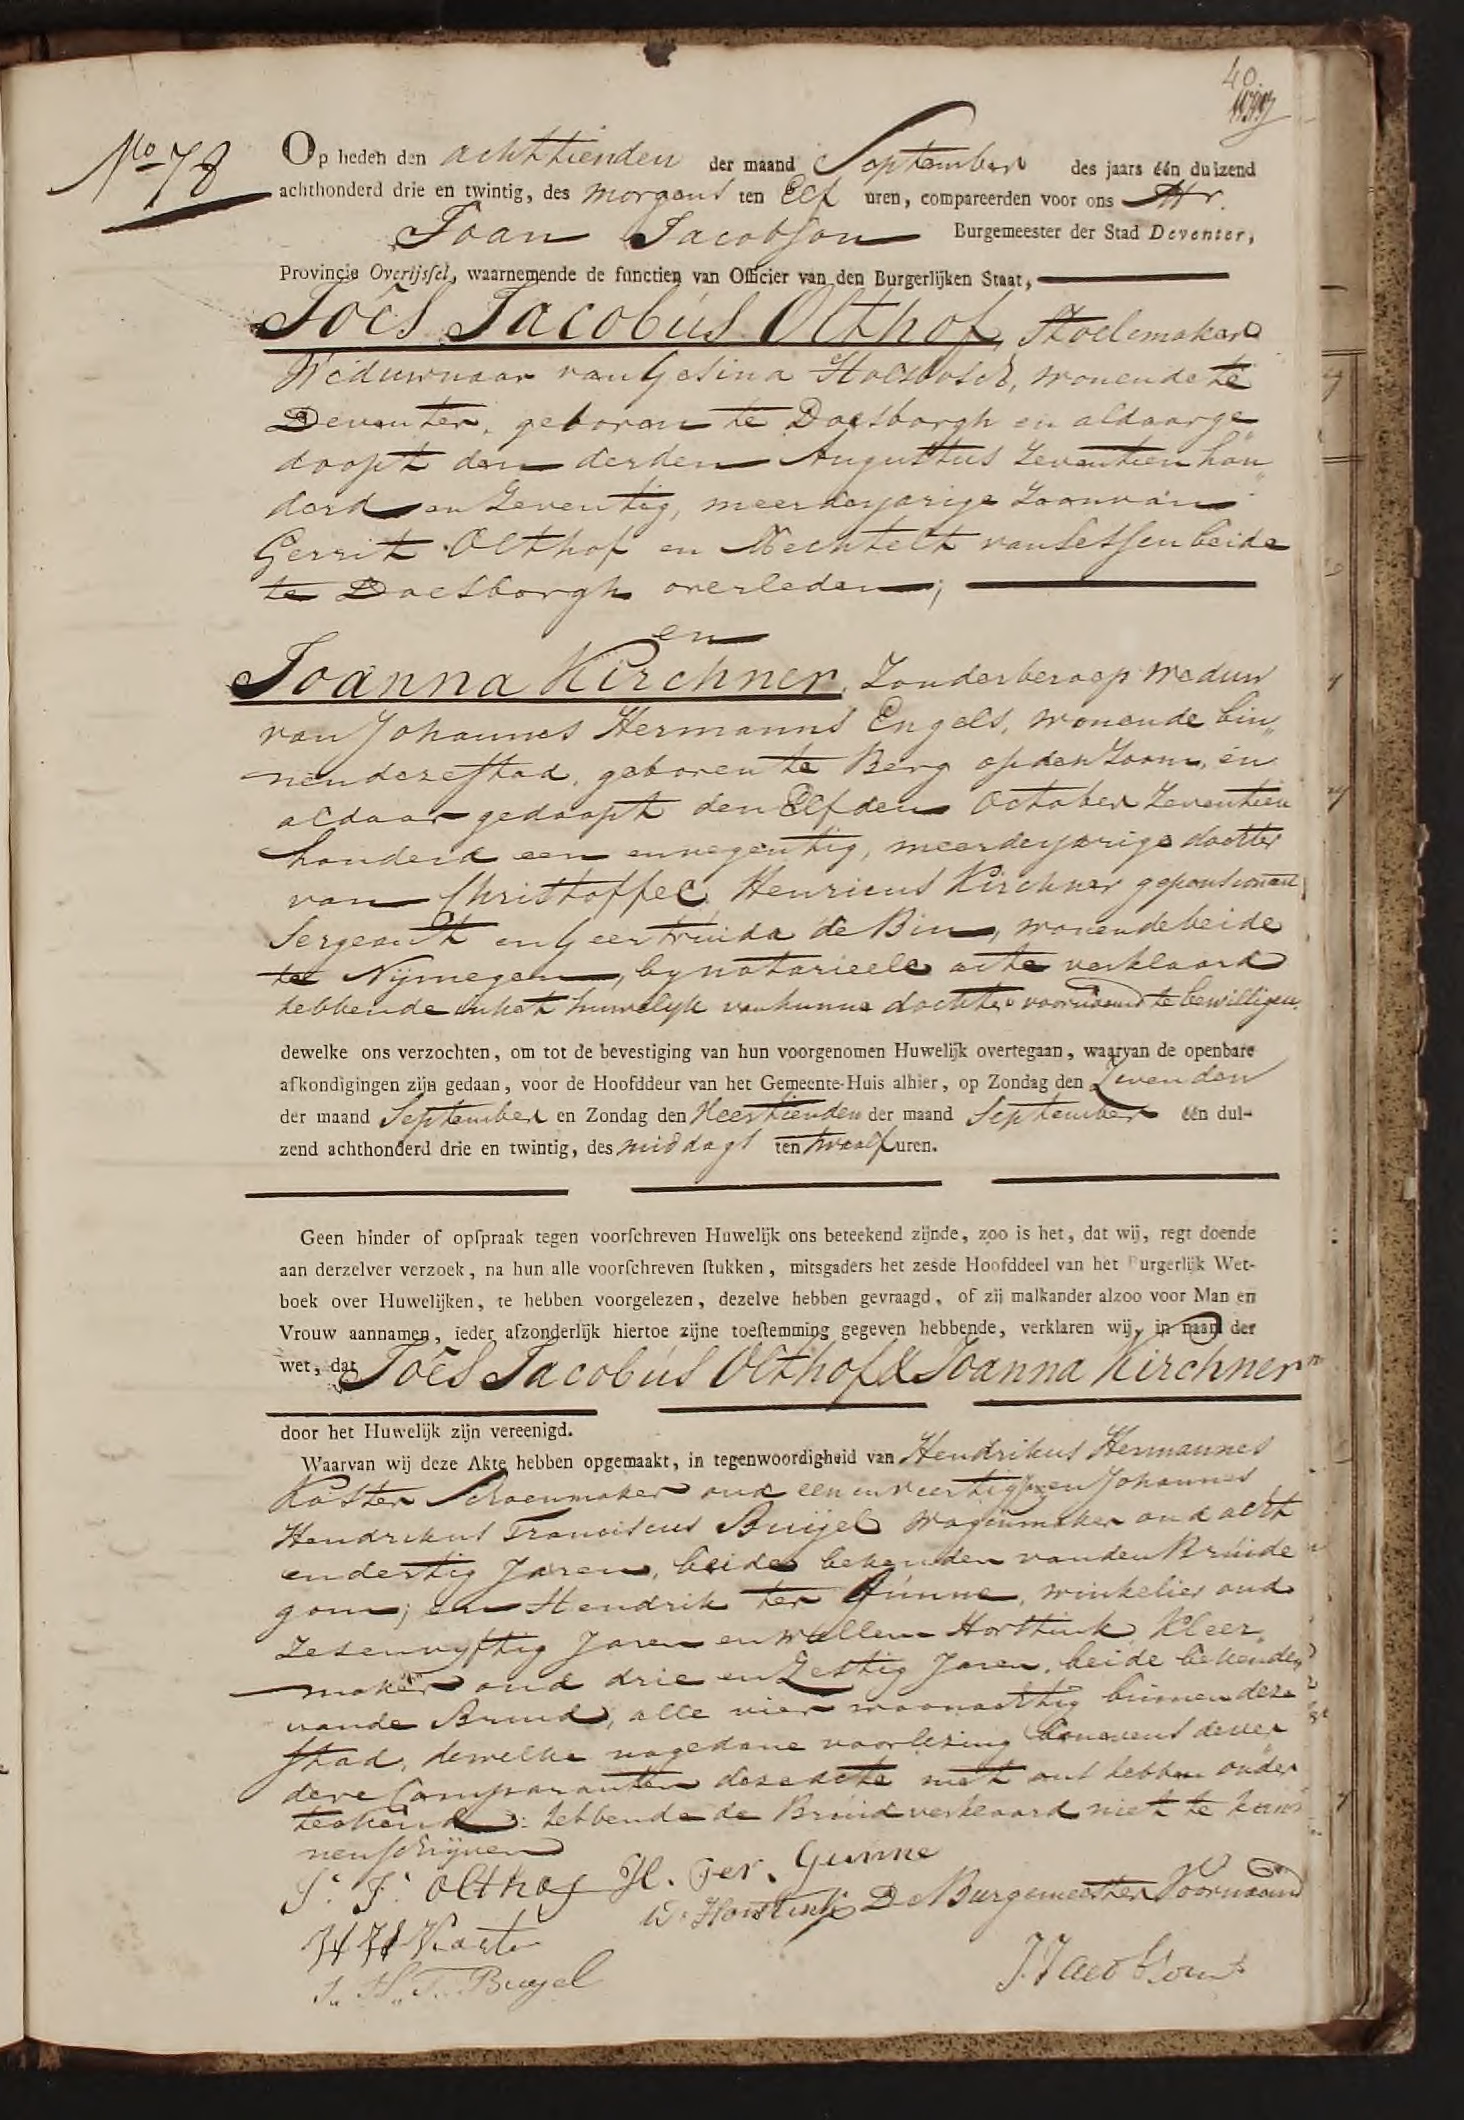 40.
No 78
Op heden den achttienden der maand September des jaars één duizend
achthonderd drie en twintig, des morgens ten Elf uren, compareerden voor ons Mr.
Joan Jacobson Burgemeester der Stad Deventer,
Provincie Overijsſel, waarnemende de functien van Officier van den Burgerlijken Staat,
Joēs Jacobus Olthof, Stoelemaker
Weduwnaar van Gesina Holsbosch, wonende te
Deventer, geboren te Doesborgh en aldaar ge
doopt den derden Augustus Zeventien hon„
derd en Zeventig, meerderjarige Zoon van
Gerrit Olthof en Mechtelt van Sessen beide
te Doesborgh overleden;
en
Joanna Kirchner, Zonder beroep weduw
van Johannes Hermanns Engels, wonende bin„
nen deze stad, geboren te Berg op den Zoom, en
aldaar gedoopt den Elfden October Zeventien
honderd een en negentig, meerderjarige dochter
van Christoffel Henricus Kirchner gepensioneerd
Sergeant en Geertruida de Bin, wonende beide
te Nijmegen, by notarieele acte verklaard
hebbende in het huwelijk van hunne dochter voornoemd te bewilligen.
dewelke ons verzochten, om tot de bevestiging van hun voorgenomen Huwelijk overtegaan, waarvan de openbare
afkondigingen zijn gedaan, voor de Hoofddeur van het Gemeente-Huis alhier, op Zondag den Zevenden
der maand September en Zondag den Veertienden der maand September één dui-
zend achthonderd drie en twintig, des middags ten twaalf uren.
Geen hinder of opſpraak tegen voorſchreven Huwelijk ons beteekend zijnde, zoo is het, dat wij, regt doende
aan derzelver verzoek, na hun alle voorſchreven ſtukken, mitsgaders het zesde Hoofddeel van het Burgerlijk Wet-
boek over Huwelijken, te hebben voorgelezen, dezelve hebben gevraagd, of zij malkander alzoo voor Man en
Vrouw aannamen, ieder afzonderlijk hiertoe zijne toeſtemming gegeven hebbende, verklaren wij, in naam der
wet, dat Joēs Jacobus Olthof & Joanna Kirchner
door het Huwelijk zijn vereenigd.
Waarvan wij deze Akte hebben opgemaakt, in tegenwoordigheid van Hendrikus Hermannes
Koster Schoenmaker oud een en veertig en Johannes
Hendrikus Franciscus Buijel wagenmaker oud acht
en dertig Jaren, beide bekenden van den Bruide
gom; en Hendrik ter Gunne, winkelier oud
Zes en vyftig Jaren en Willem Horstink, Kleer„
maker oud drie en Zestig Jaren, beide bekenden
van de Bruid, alle vier woonachtig binnen deze
stad, dewelke na gedane voorlezing benevens de ver
dere Comparanten deze acte met ons hebben onder
tekend: hebbende de Bruid verklaard niet te kun„
nen schrijven
J. J. Olthof H. Ter. Gunne
W. Horstink De Burgemeester Voornoemd
H H Koster
J. H. F. Bugel
J. Jacobson